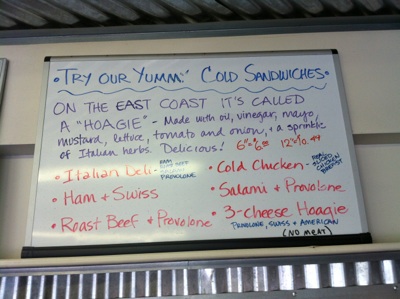 • TRY OUR YUMMY COLD SANDWICHES •
ON THE EAST COAST IT'S CALLED
A "HOAGIE" - Made with oil, vinegar, mayo,
mustard, lettuce, tomato and onion, + a sprinkle
of Italian herbs. Delicious! 6"=6
• Italian Deli - HAM
PROVOLONE
• Cold Chicken -
CHICKEN
• Ham + Swiss
• Salami + Provolone
• Roast Beef + Provolone
• 3-cheese Hoagie
PROVOLONE, SWISS + AMERICAN
(NO MEAT)